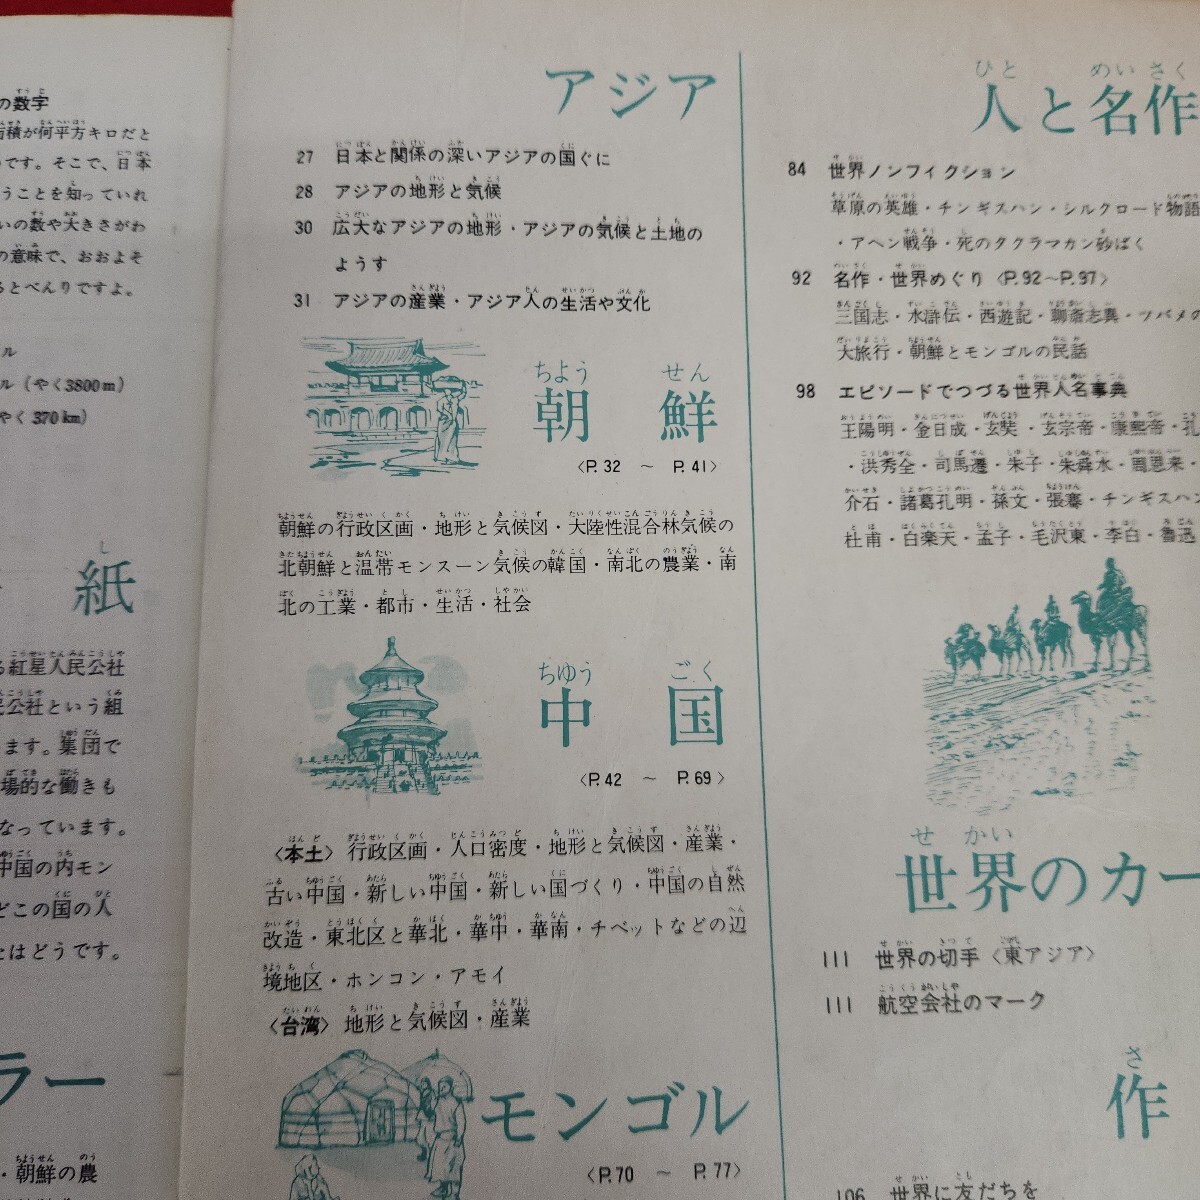 の数字
面積が何平方キロだと
のです。そこで、日本
うことを知っていれ
いの数や大きさがわ
の意味で、おおよそ
るとべんりですよ。
ル
ル（やく3800m）
やく370km）
紙
る紅星人民公社
民公社という組
ます。集団で
場的な働きも
なっています。
中国の内モン
どこの国の人
たはどうです。
ラー
・朝鮮の農
アジア
27 日本と関係の深いアジアの国ぐに
28 アジアの地形と気候
30 広大なアジアの地形・アジアの気候と土地の
ようす
31 アジアの産業・アジア人の生活や文化
朝鮮
〈P.32 〜 P.41〉
朝鮮の行政区画・地形と気候図・大陸性混合林気候の
北朝鮮と温帯モンスーン気候の韓国・南北の農業・南
北の工業・都市・生活・社会
中国
〈P.42 〜 P.69〉
〈本土〉行政区画・人口密度・地形と気候図・産業・
古い中国・新しい中国・新しい国づくり・中国の自然
改造・東北区と華北・華中・華南・チベットなどの辺
境地区・ホンコン・アモイ
〈台湾〉地形と気候図・産業
モンゴル
〈P.70 〜 P.77〉
人と名作
84 世界ノンフィクション
草原の英雄・チンギスハン・シルクロード物語
・アヘン戦争・死のタクラマカン砂ばく
92 名作・世界めぐり〈P.92〜P.97〉
三国志・水滸伝・西遊記・聊斎志異・ツバメの
大旅行・朝鮮とモンゴルの民話
98 エピソードでつづる世界人名事典
王陽明・金日成・玄奘・玄宗帝・康熙帝・孔
・洪秀全・司馬遷・朱子・朱舜水・周恩来・
介石・諸葛孔明・孫文・張騫・チンギスハン
杜甫・白楽天・孟子・毛沢東・李白・魯迅
世界のカー
111 世界の切手〈東アジア〉
111 航空会社のマーク
作
106 世界に友だちを